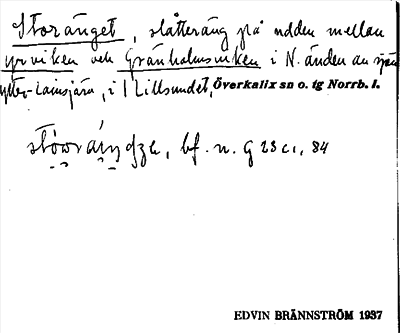 Storänget, slåtteräng på udden mellan
yrviken och Granholmsviken i N. änden av sjön
Ytter-Lainsjärv, i Lillsundet, Överkalix sn o. tg Norrb. l.
bf. n. G 23 c1, 84
EDVIN BRÄNNSTRÖM 1937